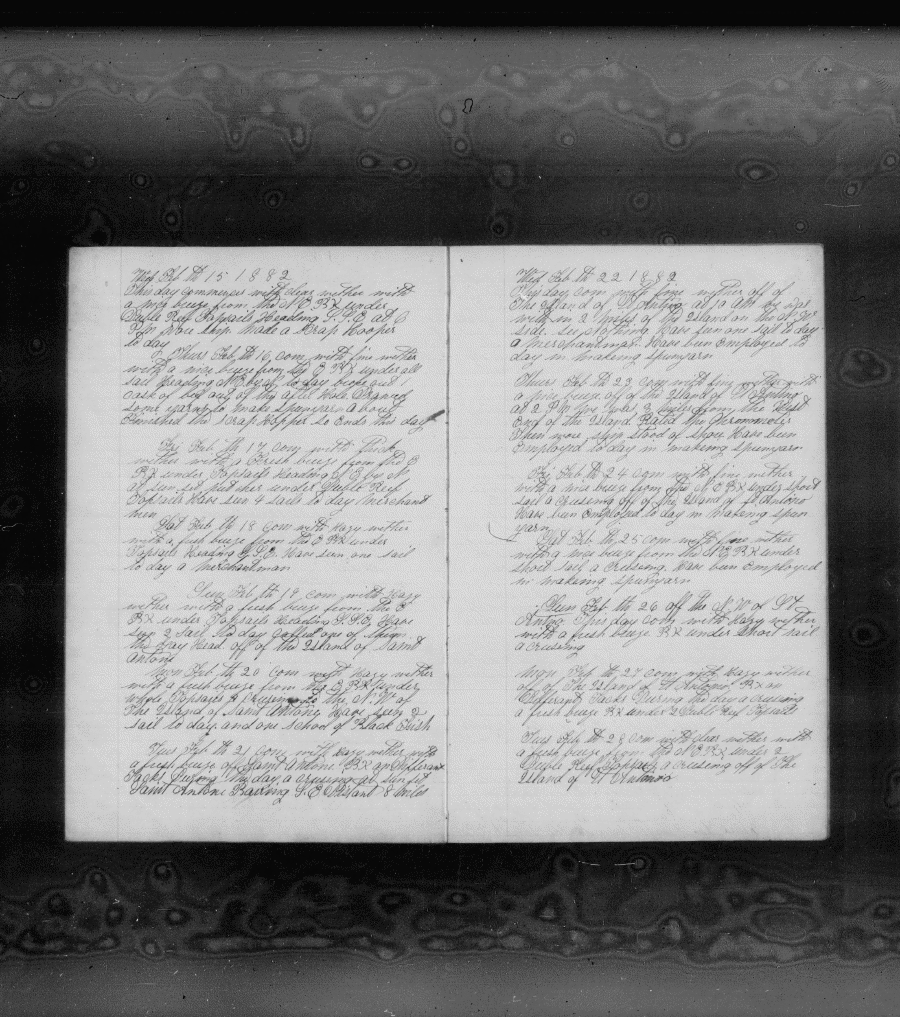 Wed Feb th 15 1882
This day commences with clear wether with
a nice breeze from the N E By under
Duble Reef Topsails Heading S.S.E at 6
P M wore ship made a Scrap Hooper
to day
Thurs Feb th 16 com with fine wether
with a nice breeze from the E By under all
sail Heading N E by N to day broke out 1
cask of out of the After Hole
some yarns to make Spunyarn About
Finished the Scrap Hopper So Ends this day
Fri Feb th 17 com with thick
wether with a fresh breeze from the E
By under Topsails Heading by N
at sun set her under Duble Reef
Topsails Have seen 4 sails to day Merchant
men
Sat Feb th 18 Com with hazy wether
with a fresh breeze from the E By under
Topsails Heading S.S.E. Have seen one sail
to day a Merchantman
Sun Feb th 19 com with hazy
wether with a fresh breeze from the E
By under Topsails Heading S.S.E. Have
seen 2 Sail this day one of them
the Head off of the Island of Saint
Antone
Mon Feb th 20 Com with hazy wether
with a fresh breeze from the E By under
whole Topsails a Cruising to the N.W of
The Island of Saint Antone Have seen 2
sail to day and one school of Black Fish
Tues Feb th 21 com with hazy wether with
a fresh breeze off of Saint Antone By on Differant
Tacks During the day a cruising at sun set
Saint Antone Bearing S.E Distant 8 Miles
Wed Feb th 22 1882
This day com with fine wether off of
The Island of St Antno at 10 AM
with in 2 miles of the Island on the N.W
side see nothing Have seen one sail to day
a Merchantman. Have been Employed to
day in makeing Spunyarn
Thurs Feb th 23 com with fine wether with
a fine breeze off of the Island of St Antno
at 2 P M 2 miles from the West
End of the Island Rated the Chronometer
Then wore ship stood of shore Have been
Employed to day in makeing Spunyarn
Fri Feb th 24 com with fine wether
with a nice breeze from the N E By under short
sail a Cruseing off of the Island of St Antono
Have been Employed to day in makeing Spun
yarn
Sat Feb th 25 com with fine wether
with a nice breeze from the N E By under
short sail a Cruseing. Have been Employed
in makeing Spunyarn
Sun Feb th 26 off the N.W of St
Antno This day Com with hazy wether
with a fresh breeze By under Short sail
a cruseing
Mon Feb th 27 com with hazy wether
off of The Island of St Antono By on
Differant Tacks During the day a cruseing
a fresh breeze By under 2 Duble Reef Topsails
Tues Feb th 28 com with clear wether with
a fresh breeze from the N E By under 2
Duble Reef Topsails a cruseing off of The
Island of St Antonio